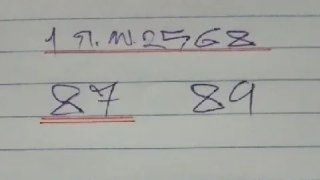 1 ก.พ.2568
87 89